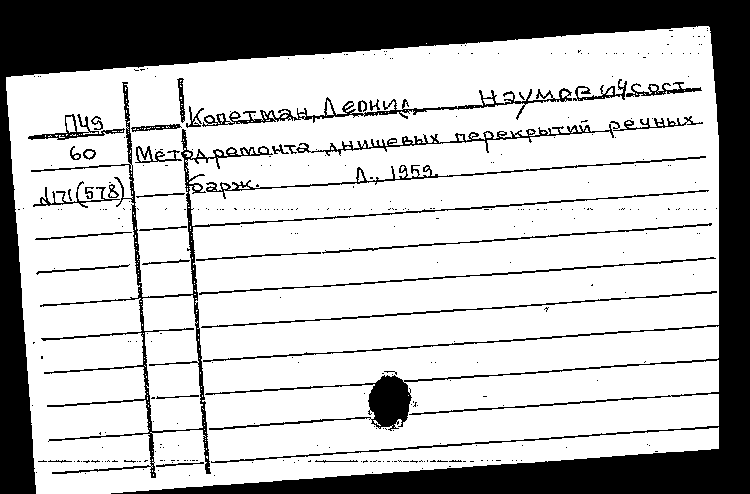 П49 Копетман, Леонид Наумович сост.
60 Метод ремонта днищевых перекрытий речных
д171(578) барж. Л., 1959.